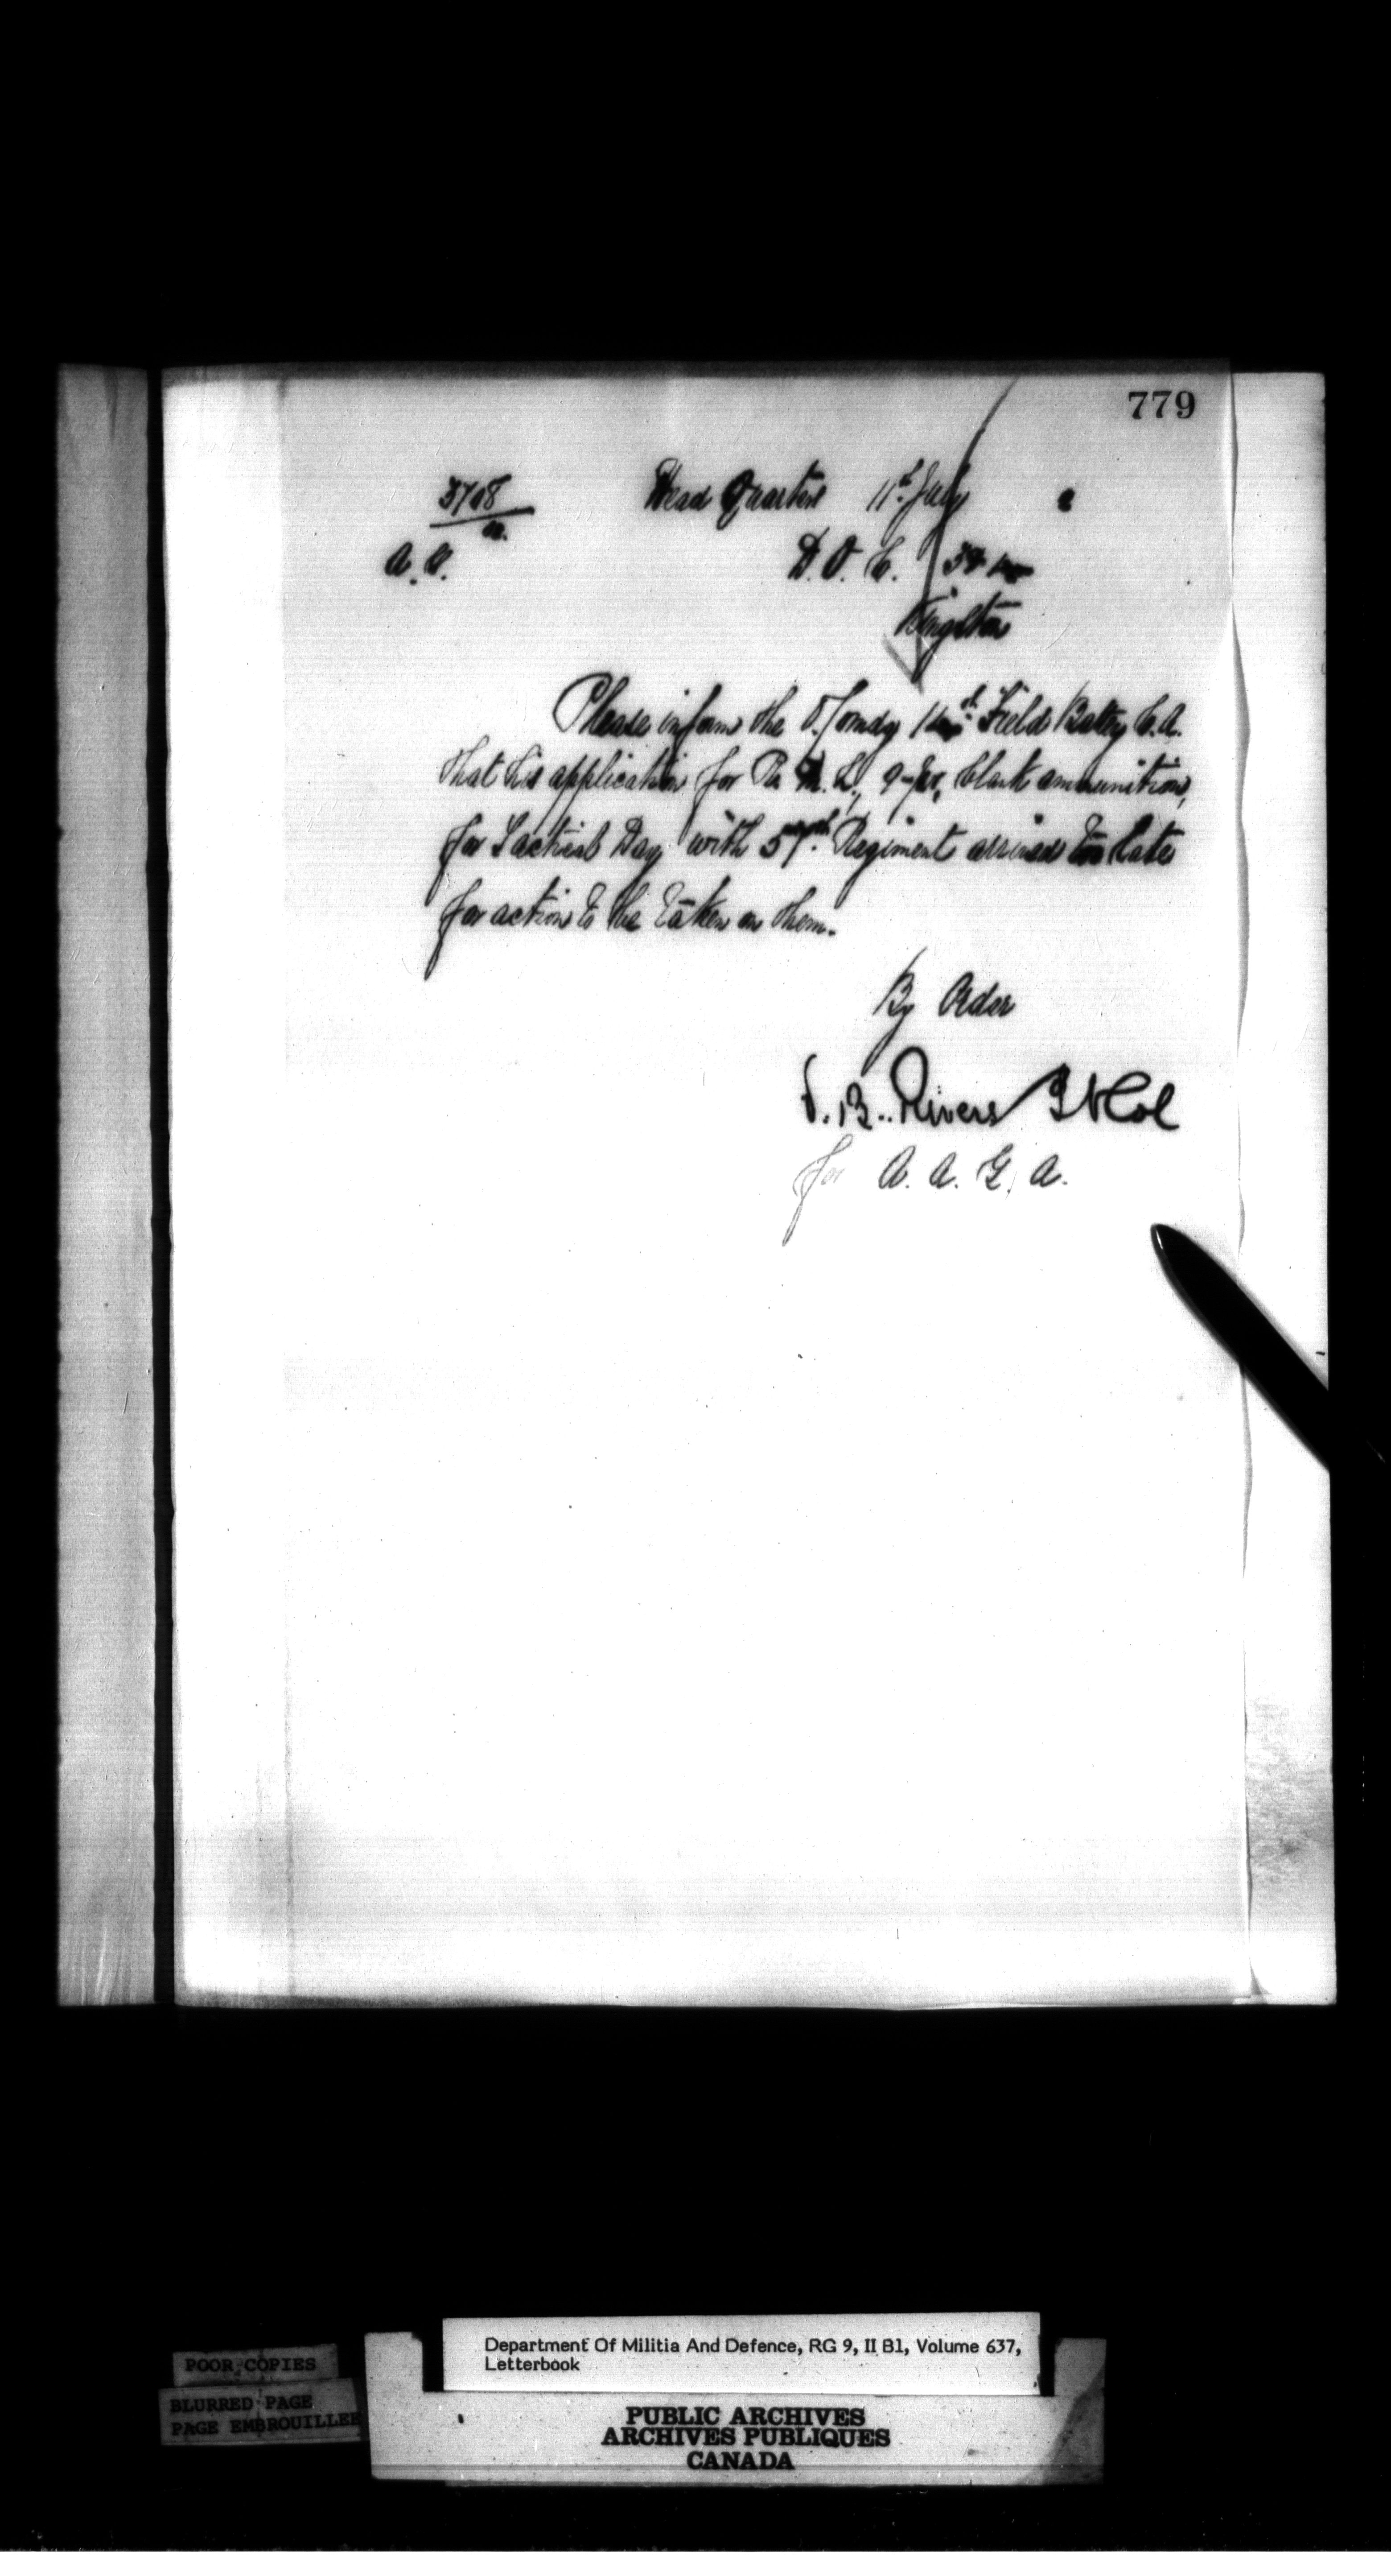 779
3708
Head Quarters 11th July
A. O.
D. O. C. 3 &
Kingston
Please inform the O. Comdg 14th Field Battery C.A.
that his application for R. M. L., 9-pr, blank ammunition,
for Tactical Day with 57th Regiment arrived too late
for action to be taken on them.
By Order
V. B. Rivers Lt Col
for A. A. G. A.
Department Of Militia And Defence, RG 9, II B1, Volume 637,
Letterbook
POOR COPIES
BLURRED PAGE
PAGE EMBROUILLEE
PUBLIC ARCHIVES
ARCHIVES PUBLIQUES
CANADA